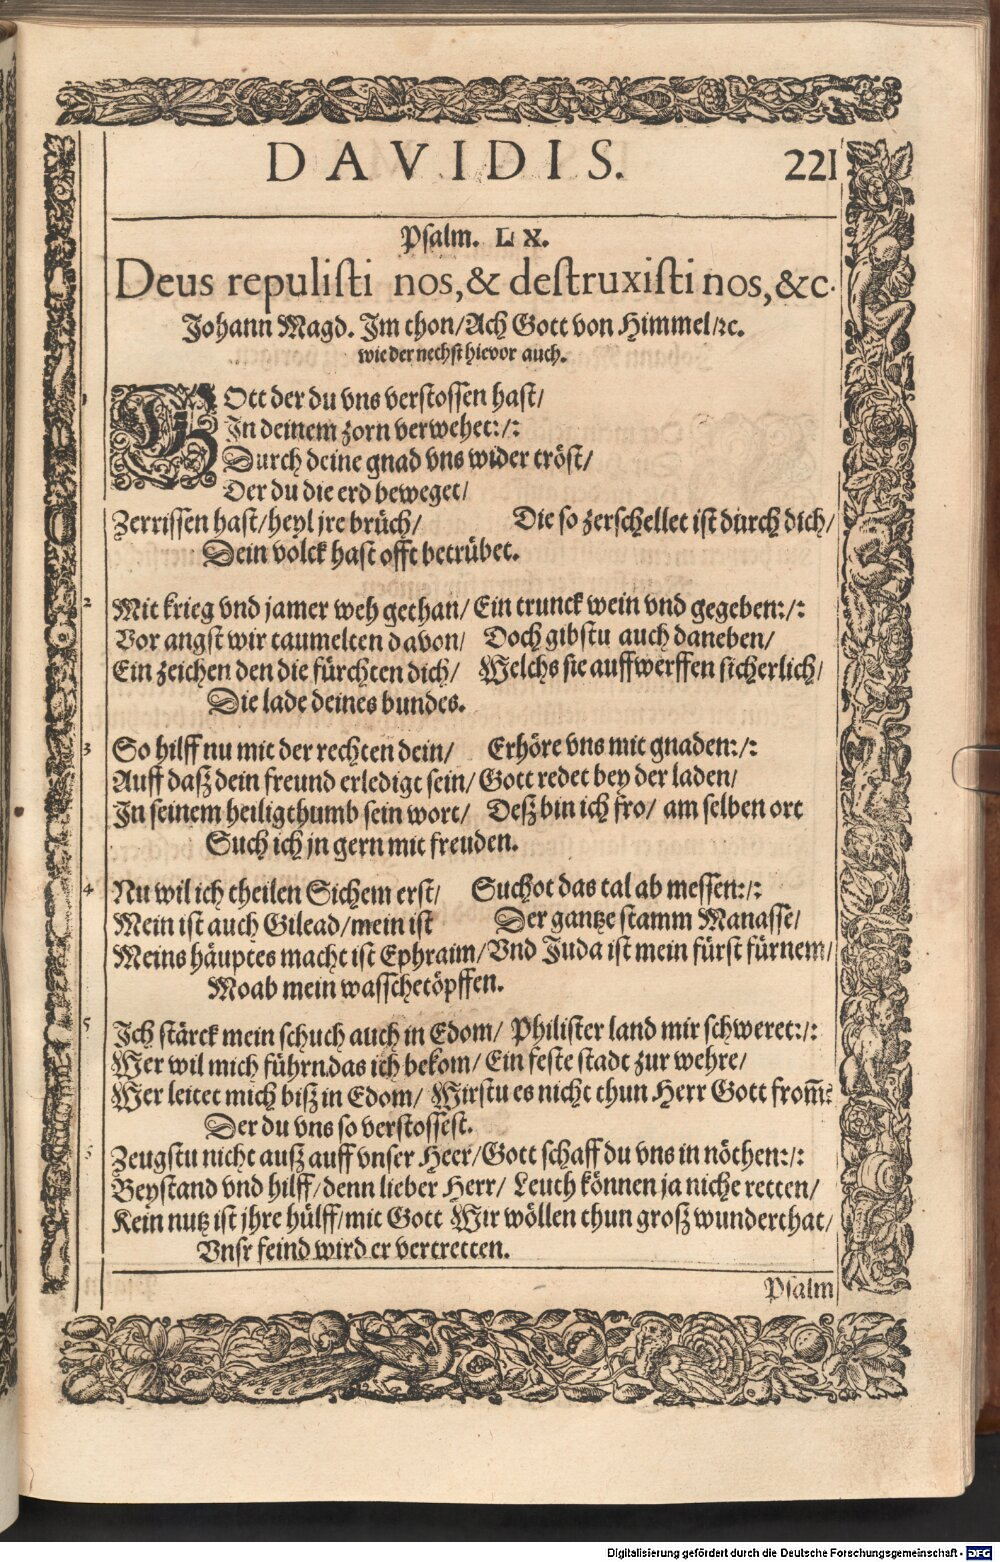 DAVIDIS. 221
Psalm. LX.
Deus repulisti nos, & destruxisti nos, &c.
Johann Magd. Im thon/Ach Gott von Himmel/ꝛc.
wie der nechst hievor auch.
1 GOtt der du vns verstossen hast/
In deinem zorn verwehet:/:
Durch deine gnad vns wider tröst/
Der du die erd beweget/
Zerrissen hast/heyl jre brüch/ Die so zerschellet ist durch dich/
Dein völck hast offt betrübet.
2 Mit krieg vnd jamer weh gethan/ Ein trunck wein vnd gegeben:/:
Vor angst wir taumelten davon/ Doch gibstu auch daneben/
Ein zeichen den die fürchten dich/ Welchs sie auffwerffen sicherlich/
Die lade deines bundes.
3 So hilff nu mit der rechten dein/ Erhöre vns mit gnaden:/:
Auff daß dein freund erledigt sein/ Gott redet bey der laden/
In seinem heiligthumb sein wort/ Deß bin ich fro/ am selben ort
Such ich jn gern mit freuden.
4 Nu wil ich theilen Sichem erst/ Suchot das tal ab messen:/:
Mein ist auch Gilead/mein ist Der gantze stamm Manasse/
Meins häuptes macht ist Ephraim/ Vnd Juda ist mein fürst fürnem/
Moab mein wasschetöpffen.
5 Ich stärck mein schuch auch in Edom/ Philister land mir schweret:/:
Wer wil mich führn.das ich bekom/ Ein feste stadt zur wehre/
Wer leitet mich biß in Edom/ Wirstu es nicht thun Herr Gott from̃?
Der du vns so verstossest.
6 Zeugstu nicht auß auff vnser Heer/ Gott schaff du vns in nöthen:/:
Beystand vnd hilff/denn lieber Herr/ Leuth können ja niche retten/
Kein nutz ist jhre hülff/mit Gott Wir wöllen thun groß wunderthat/
Vnsr feind wird er vertretten.
Psalm
Digitalisierung gefördert durch die Deutsche Forschungsgemeinschaft - DFG